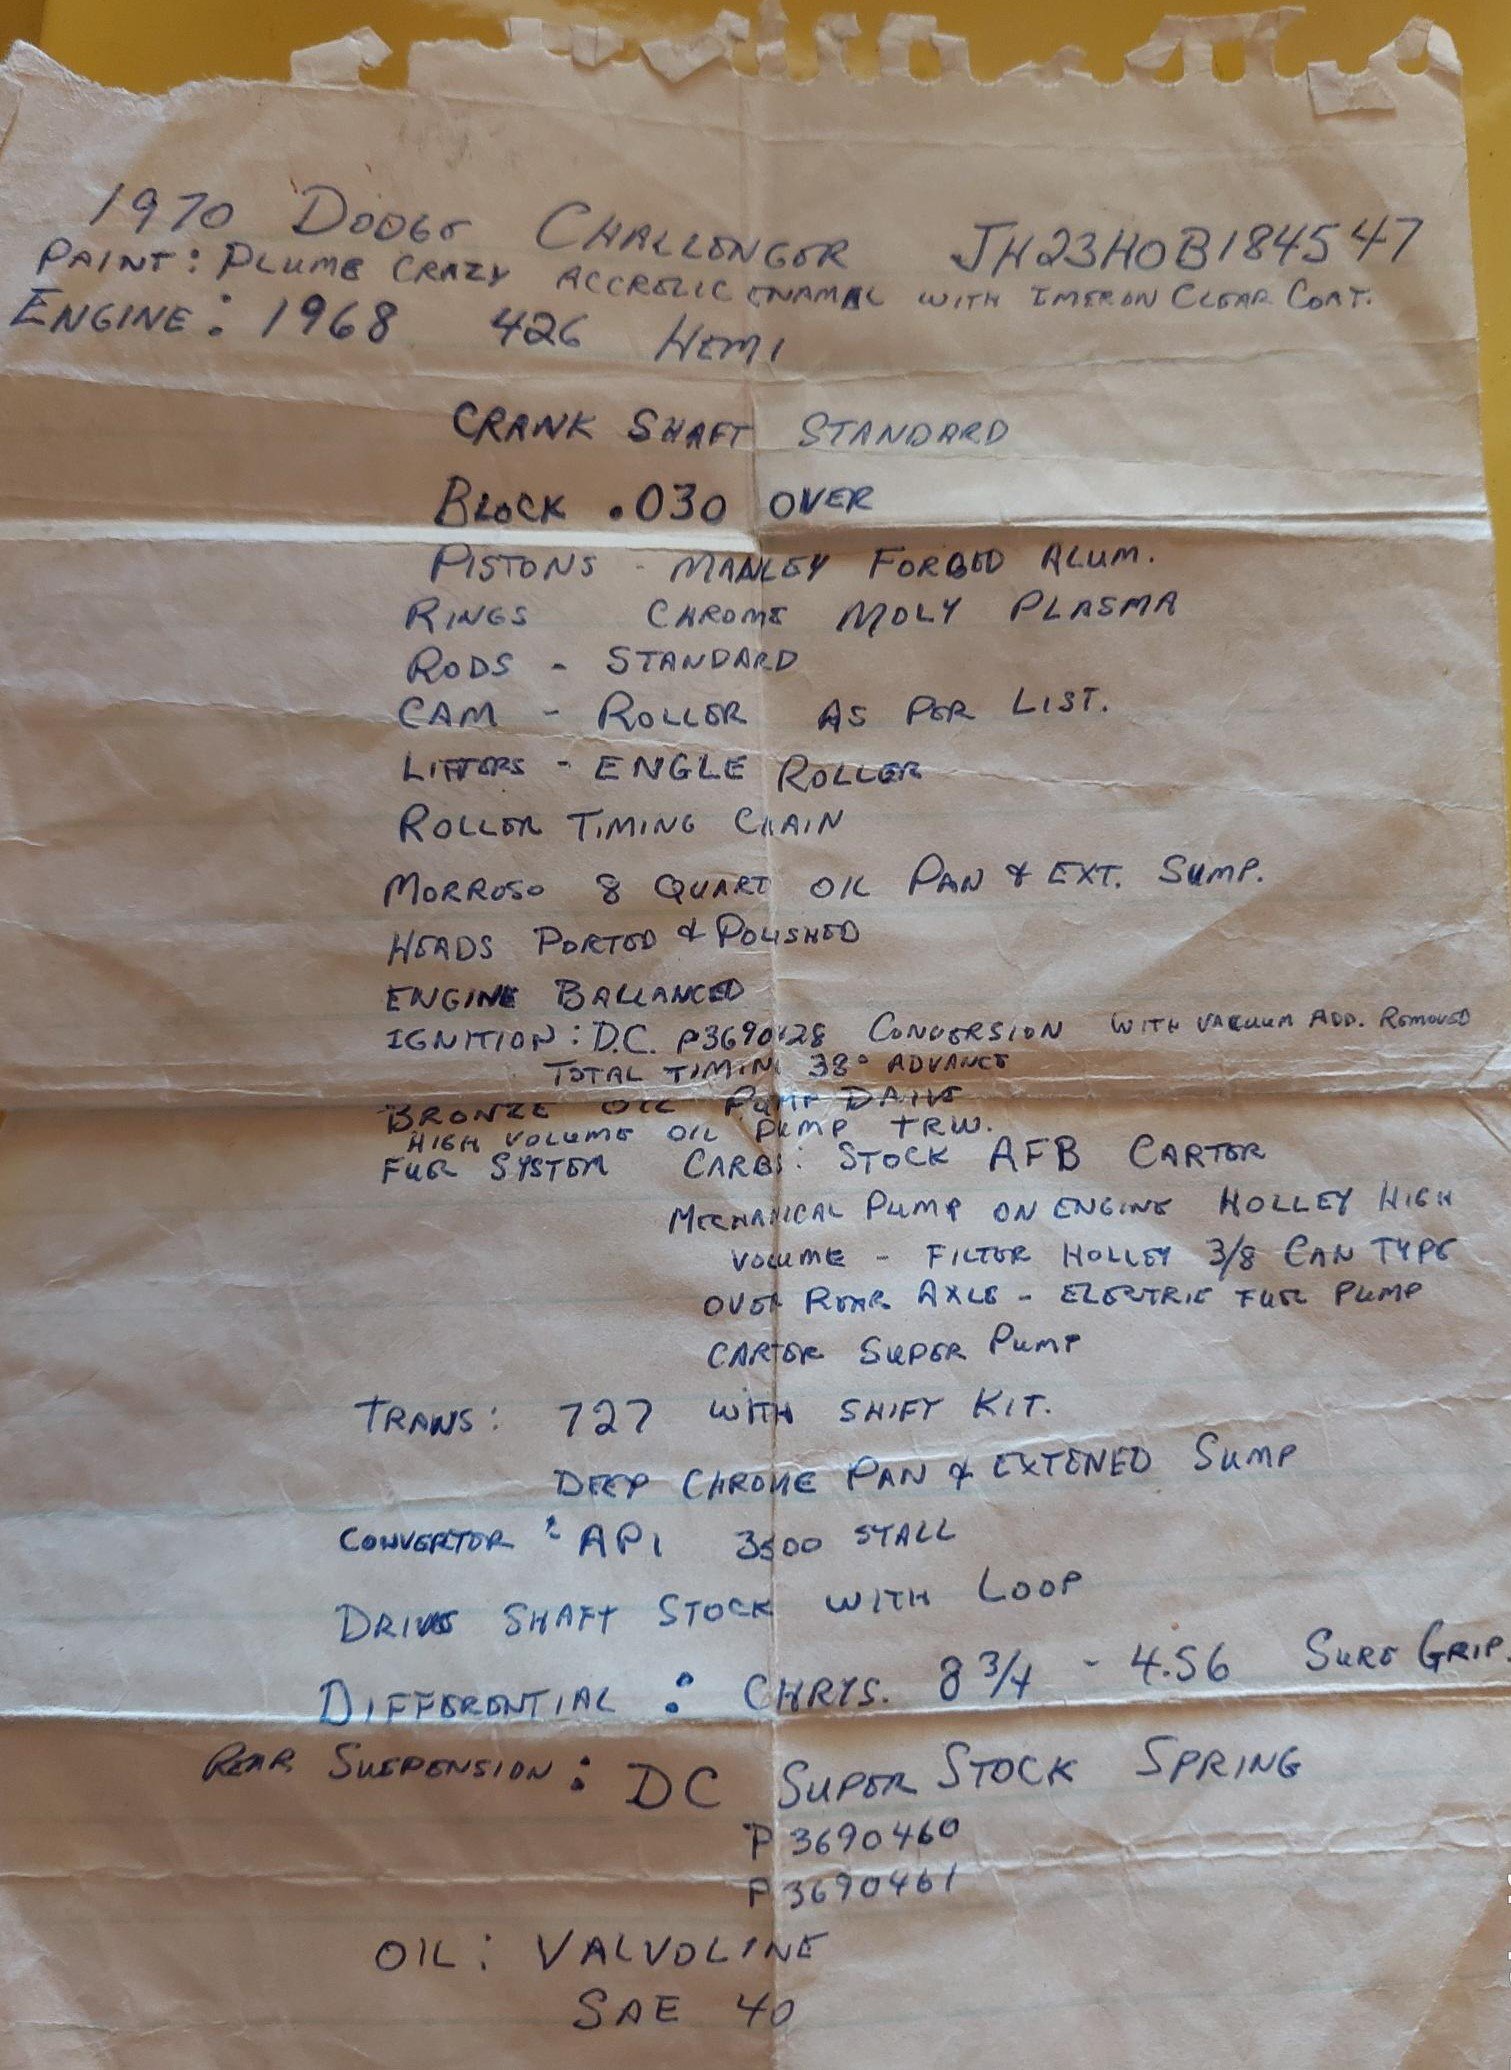 1970 DODGE CHALLENGER JH23H0B184547
PAINT: PLUMB CRAZY ACCRELIC ENAMAL WITH IMERON CLEAR COAT.
ENGINE: 1968 426 HEMI
CRANK SHAFT STANDARD
BLOCK .030 OVER
PISTONS - MANLEY FORGED ALUM.
RINGS CHROME MOLY PLASMA
RODS - STANDARD
CAM - ROLLER AS PER LIST.
LIFTERS - ENGLE ROLLER
ROLLER TIMING CHAIN
MORROSO 8 QUART OIL PAN & EXT. SUMP.
HEADS PORTED & POLISHED
ENGINE BALLANCED
IGNITION: D.C. P3690128 CONVERSION WITH VACUUM ADD. REMOVED
TOTAL TIMING 38° ADVANCE
BRONZE OIL PUMP DRIVE
HIGH VOLUME OIL PUMP TRW.
FUEL SYSTEM CARBS: STOCK AFB CARTER
MECHANICAL PUMP ON ENGINE HOLLEY HIGH
VOLUME - FILTER HOLLEY 3/8 CAN TYPE
OVER REAR AXLE - ELECTRIC FUEL PUMP
CARTER SUPER PUMP
TRANS: 727 WITH SHIFT KIT.
DEEP CHROME PAN & EXTENED SUMP
CONVERTOR: API 3500 STALL
DRIVE SHAFT STOCK WITH LOOP
DIFFERENTIAL: CHRYS. 8 3/4 - 4.56 SURE GRIP.
REAR SUSPENSION: DC SUPER STOCK SPRING
P3690460
P3690461
OIL: VALVOLINE
SAE 40